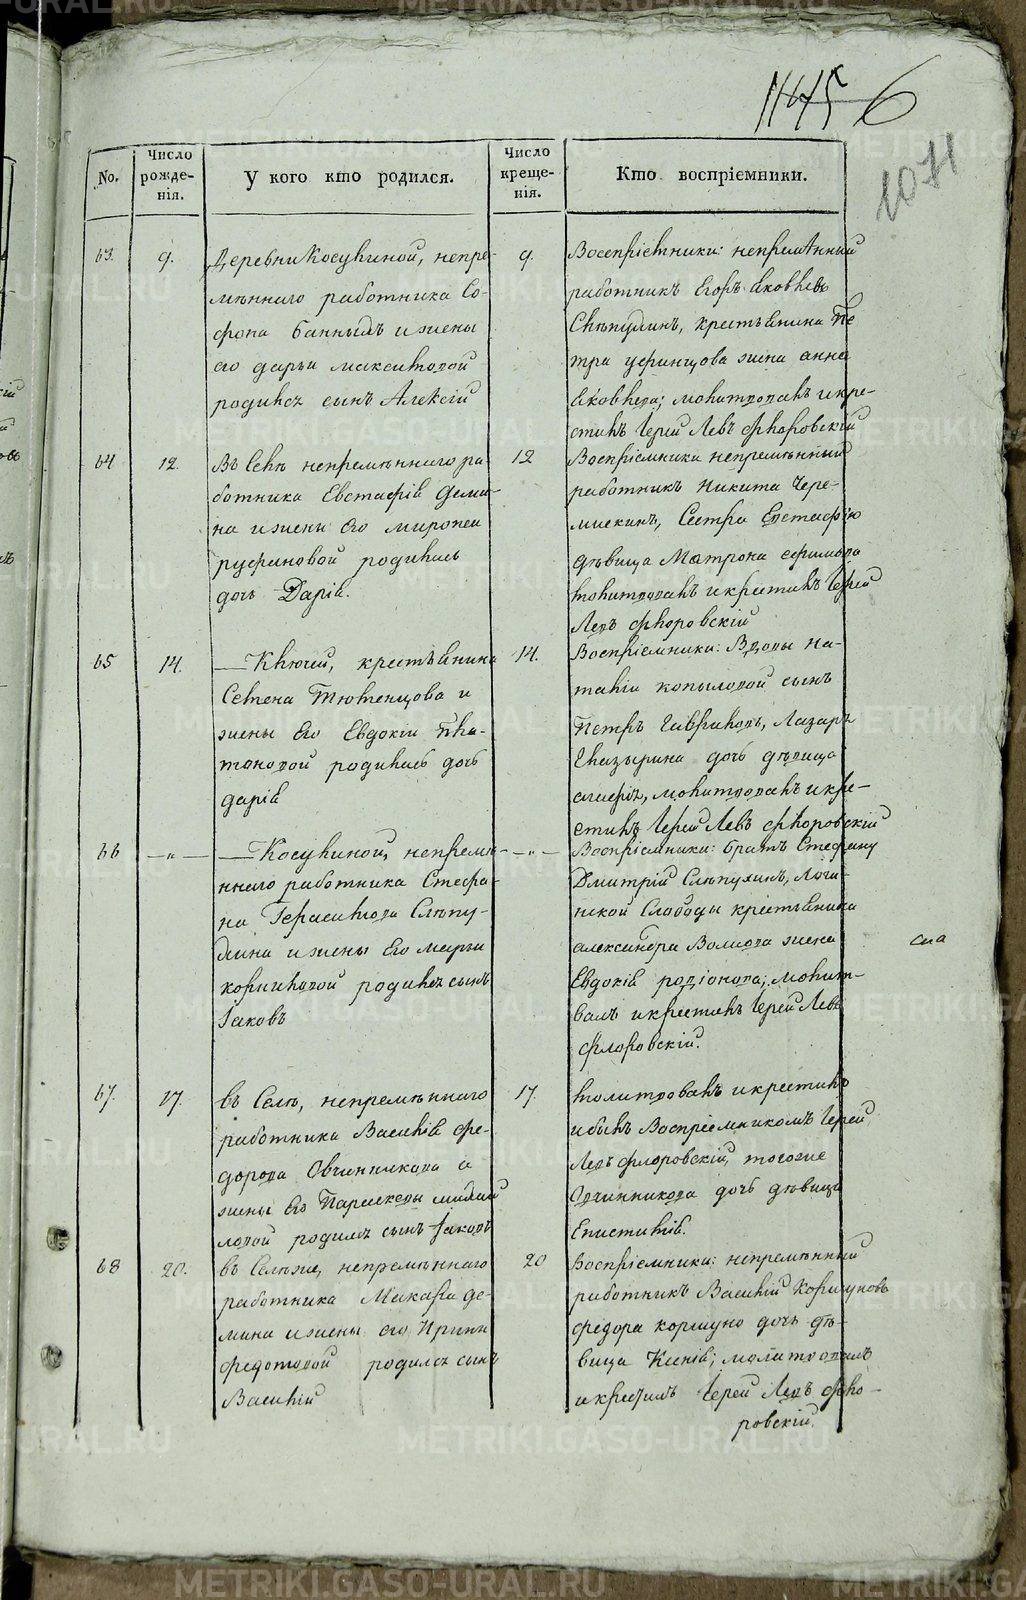 1145 6
1071
No.
Число рожденія.
У кого кто родился.
Число крещенія.
Кто воспріемники.
63.
9.
Деревни Косулиной, непре-
мѣннаго работника Со-
фона Банныхъ и жены
его дарьи максимовой
родился сынъ Алексій
9.
Воспріемники: непремѣнный
работникъ Егоръ Яковлевъ
Слѣпухинъ, крестьянина Пе
тра уфинцова жена анна
Яковлева; молитвовалъ и кре-
стилъ Іерей Левъ Флоровскій
64
12.
Въ Селѣ непремѣннаго ра-
ботника Евстафія Деми-
на и жены его миропеи
руфиновой родилась
дочь Дарія.
12
Воспріемники непремѣнный
работникъ Никита Чере-
мискинъ, Сестра Евстафію
дѣвица Матрона ефимова
молитвовалъ и крестилъ Іерей
Левъ Флоровскій
65
14.
— Ключей, крестьянина
Семена Тютенцова и
жены Его Евдокіи Пла-
тоновой родилась дочь
дарія
14.
Воспріемники: Вдовы На-
таліи копыловой сынъ
Петръ Гавриловъ, Лазаря
Глазырина дочь дѣвица
агафія, молитвовалъ и кре-
стилъ Іерей Левъ Флоровскій
66
—„—
— Косулиной, непремѣ-
ннаго работника Стефа-
на Герасимова Слѣпу-
хина и жены Его марьи
корниловой родился сынъ
Іаковъ
—„—
Воспріемники: братъ Стефану
Дмитрій Слѣпухинъ, Логи-
нской Слободы крестьянина
александра Волкова жена
Евдокія родіонова; молит-
валъ и крестилъ Іерей Левъ
Флоровскій.
67.
17.
въ Селѣ, непремѣннаго
работника Василія Фе-
дорова Овчинникова и
жены Его Парасковьи михай
ловой родился сынъ Іаковъ
17.
молитвовалъ и крестилъ
и былъ Воспріемникомъ Іерей
Левъ Флоровскій, тогоже
Овчинникова дочь дѣвица
Епистимія.
68
20.
въ Селѣже, непремѣннаго
работника Макара де-
мина и жены его Ирины
федотовой родился сынъ
Василій
20
Воспріемники: непремѣнный
работникъ Василій Коршуновъ
федора коршуно дочь дѣ-
вица Ксенія; молитвовалъ
и крестилъ Іерей Левъ Фло-
ровскій.
METRIKI.GASO-URAL.RU